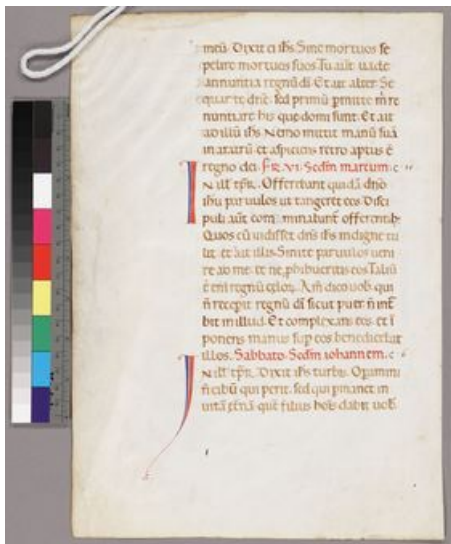 meū. Dixit ei ih̄s. Sine mortuos se
pelire mortuos suos. Tu aūt uade
annuntia regnū dī. Et ait alter. Se
quar te dn̄e. sed primū p̄mitte m̄ re
nuntiare his que domi sunt. Et ait
ad illū ih̄s. Nemo mittit manū suā
in aratrū. et aspiciens retro aptus ē
regno dei. Fr̄. vi. Scd̄m marcum. c
N ill̄ tp̄r. Offerebant quidā dn̄o
ih̄u paruulos ut tangeret eos. Disci
puli aūt com minabant̄ offerentib;
Quos cū uidisset dn̄s ih̄s indigne tu
lit. et ait illis. Sinite paruulos ueni
re ad me. et ne, phibueritis eos. Taliū
ē eni regnū celoꝝ. Am̄ dico uob. qui
n̄ recepit regnū dī sicut puer n̄ int̄
bit in illud. Et complexans eos. et ī
ponens manus sup̄ eos benedicebat
illos. Sabbato. Scd̄m iohannem. c
N ill̄ tp̄r. Dixit ih̄s turbis. Opamini
n̄ cibū qui perit. sed qui pmanet in
uitā et̄nā. quē filius hoīs dabit uob.